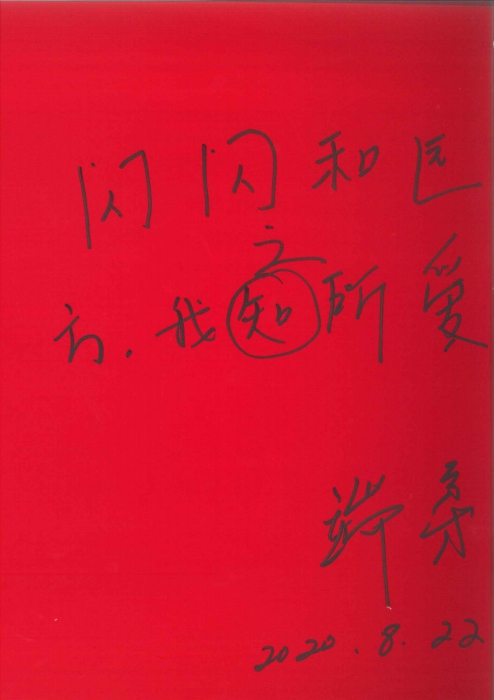 闪闪和远
之
方，我知所爱
端柔
2020.8.22